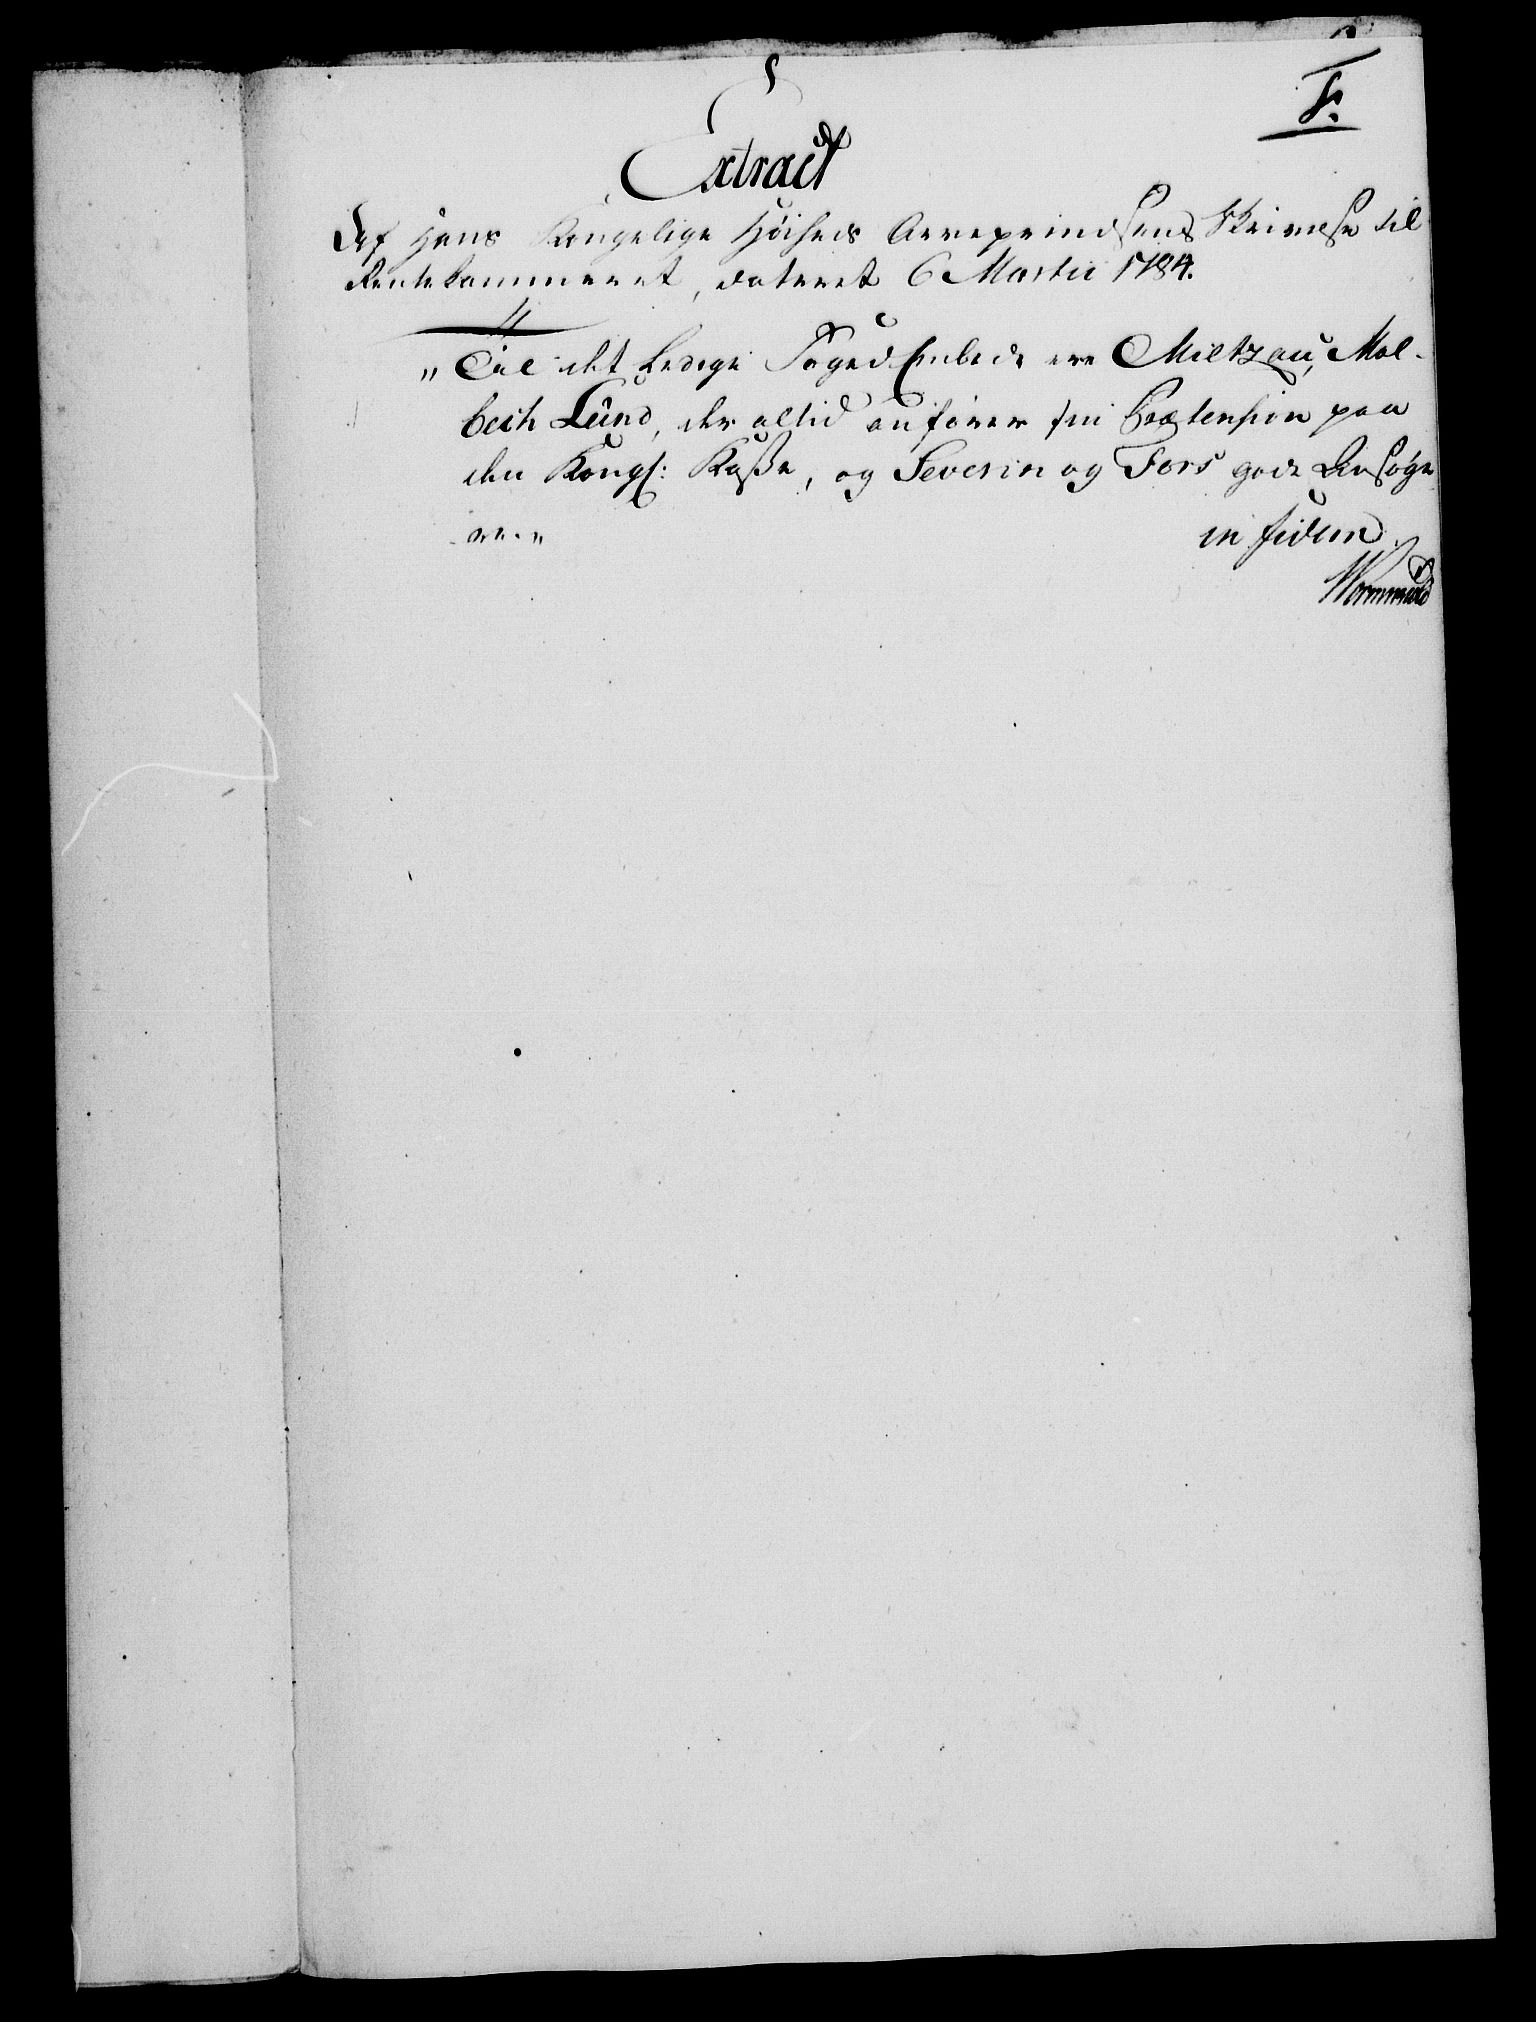 F.
Extract
Af Hans Kongelige Høiheds Arveprindsens Skrivelse til
Rentekammeret, dateret 6 Martii 1784.
„Til det ledige Foged Embede ere Mieltzau, Mol-
bech Lund, der altid anfører sin Prætension paa
den Kongl: Kasse, og Severin og Fors gode Ansøge
re.„
in fidem
Wormskiold